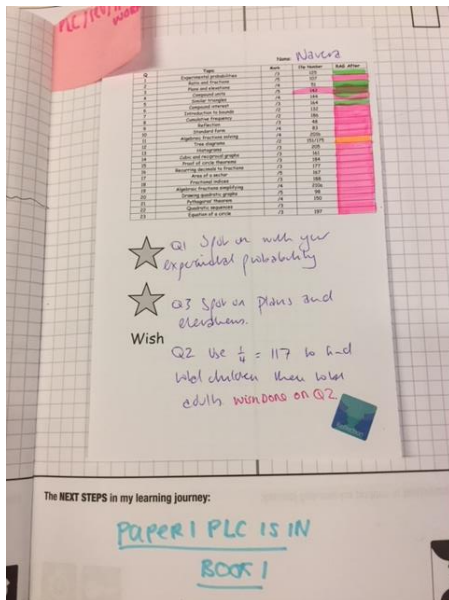 PLC/
WORK
Name: Navera
Q Topic Mark File Number RAG After
1 Experimental probabilities /3 105
2 Ratio and fractions /5 107
3 Plans and elevations /4 51
4 Compound units /5 142
5 Similar triangles /4 144
6 Compound interest /3 164
7 Introduction to bounds /2 132
8 Cumulative frequency 186
9 Reflection 48
10 Standard form /4 83
11 Algebraic fractions solving /4
12 Tree diagrams /2 151/175
13 Histograms /3 205
14 Cubic and reciprocal graphs 161
15 Proof of circle theorems /3 184
16 Recurring decimals to fractions /3 177
17 Area of a sector /5 167
18 Fractional indices /3 188
19 Algebraic fractions simplifying /4
20 Drawing quadratic graphs /5 98
21 Pythagoras' theorem /4 150
22 Quadratic sequences /3
23 Equation of a circle /3 197
Q1 Spot on with your
experimental probability
Q3 Spot on plans and
elevations.
Wish
Q2 Use 1/4 = 117 to find
total children then total
adults WISH DONE ON Q2
The NEXT STEPS in my learning journey:
PAPER 1 PLC IS IN
BOOK 1